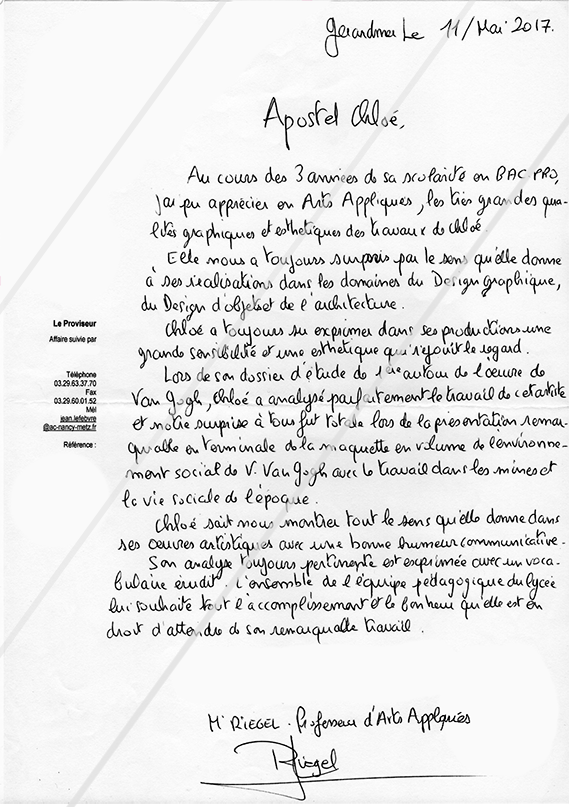 Gerardmer Le 11/Mai 2017.
Apostel Chloé,
Au cours des 3 années de sa scolarité en BAC PRO,
j'ai pu apprécier en Arts Appliqués, les très grandes qua-
lités graphiques et esthétiques des travaux de Chloé
Elle nous a toujours surpris par le sens qu'elle donne
à ses réalisations dans les domaines du Design graphique,
du Design d'objet et de l'architecture.
Chloé a toujours su exprimer dans ses productions une
grande sensibilité et une esthétique qui réjouit le regard.
Lors de son dossier d'étude de 1ère autour de l'oeuvre de
Van Gogh, Chloé a analysé parfaitement le travail de cet artiste
et notre surprise à tous fut totale lors de la présentation remar-
quable en terminale de la maquette en volume de l'environne-
ment social de V. Van Gogh avec le travail dans les mines et
la vie sociale de l'époque.
Chloé sait nous montrer tout le sens qu'elle donne dans
ses oeuvres artistiques avec une bonne humeur communicative.
Son analyse toujours pertinente est exprimée avec un voca-
bulaire érudit. L'ensemble de l'équipe pédagogique du lycée
lui souhaite tout l'accomplissement et le bonheur qu'elle est en
droit d'attendre de son remarquable travail.
Mr RIEGEL. Professeur d'Arts Appliqués
Riegel
Le Proviseur
Affaire suivie par
Téléphone
03.29.63.37.70
Fax
03.29.60.01.52
Mél
jean.lefebvre
@ac-nancy-metz.fr
Référence :